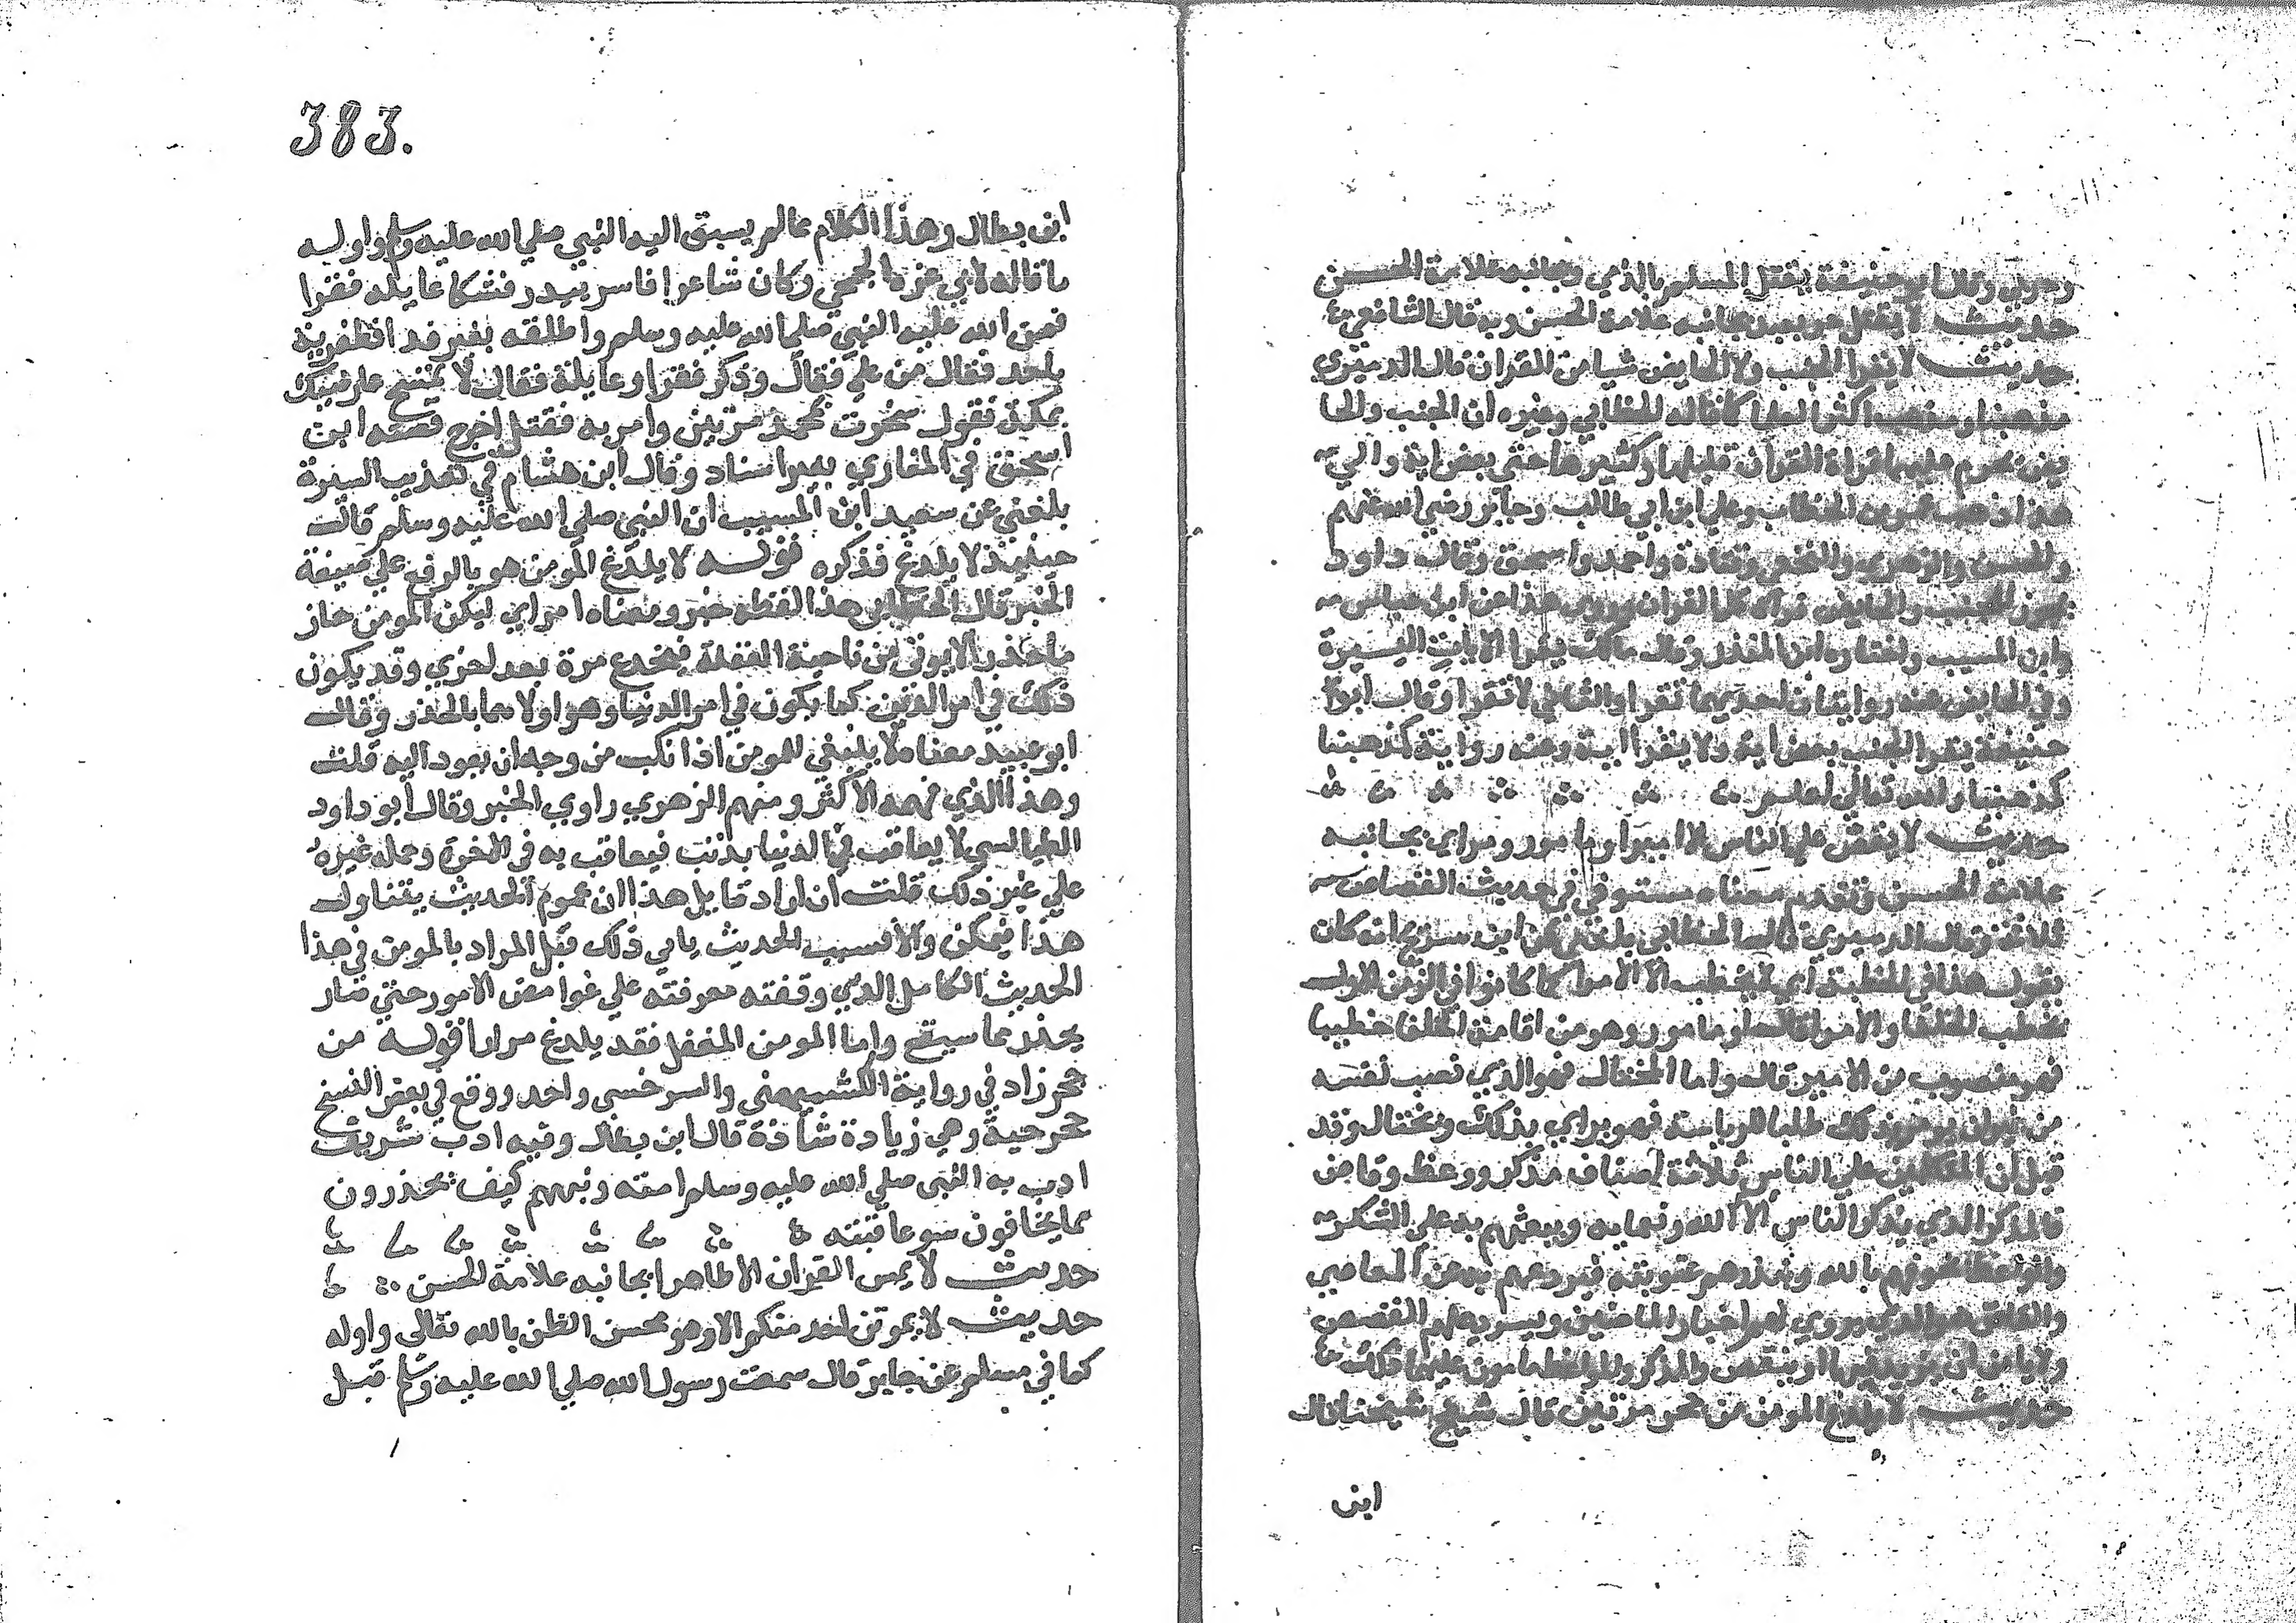 وحربي وقال ابو حنيفة يقتل المسلم بالذمي وبجانبه علامة الحسن
حديث لا يقتل حر بعبد بجانبه علامة الحسن وبه قال الشافعي
حديث لا يقرا الجنب ولا الحايض شيا من القران قال الدميري
مذهبنا ومذهب اكثر العلما كما قاله الخطابي وغيره ان الجنب والحا
يض يحرم عليهما قراة القران قليلها وكثيرها حتى بعض اية والي
هذا ذهب عمر بن الخطاب وعلي ابن ابي طالب وجابر رضي الله عنهم
والحسن والزهري والنخعي وقتادة واحمد واسحق وقال داود
يجوز للجنب والحايض قراة كل القران وروي هذا عن ابن عباس
وابن المسيب واختاره ابن المنذر وقال مالك يقرا الايات اليسيرة
وفي الحايض عنه روايتان احديهما تقرا والثاني لا تقرا وقال ابو
حنيفة يقرا الجنب بعض اية ولا يقرا اية وعنه رواية كمذهبنا
كمذهبنا والله تعالي اعلم
حديث لا يقص علي الناس الا امير او مامور ومراي بجانبه
علامة الحسن وتقدم معناه مستوفي في حديث القصاص
ثلاثة وقال الدميري قال الخطابي بلغني عن ابن سريج انه كان
يقول هذا في الخطبة اي لا يخطب الا الامرا كما كانوا في الزمن الاول
يخطب الخلفا والامرا قال او مامور وهو من اقامه الخلفا خطيبا
فهو منصوب من الامير قال واما المختال فهو الذي نصب نفسه
من غير ان يومر بذلك طلبا للرياسة فهو يراي بذلك ويختال وقد
قيل ان المتكلمين علي الناس ثلاثة اصناف مذكر وواعظ وقاص
فالمذكر الذي يذكر الناس الا الله ونعمايه ويبعثهم به علي الشكر
والواعظ يخوفهم بالله وينذرهم عقوبته فيردعهم به عن المعاصي
والقاص هو الذي يروي لهم اخبار الماضين ويسرد لهم القصص
ولا يامن ان يزيد فيها او ينقص والمذكر والواعظ مامون عليهما ذلك
حديث لا يلدغ المومن من جحر مرتين قال شيخ شيخنا قال
ابن
383.
ابن بطال وهذا الكلام مما لم يسبق اليه النبي صلي الله عليه وسلم واوله
ما قاله لابي عزة الجمحي وكان شاعرا فاسر ببدر فشكا عايلة وفقرا
فمن الله عليه النبي صلي الله عليه وسلم واطلقه بغير فدا فظفر به
باحد فقال من علي فقال وذكر فقرا وعايلة فقال لا تمسح عارضيك
بمكة تقول سخرت بمحمد مرتين وامر به فقتل اخرج قصته ابن
اسحق في المغازي بغير اسناد وقال ابن هشام في تهذيب السيرة
بلغني عن سعيد ابن المسيب ان النبي صلي الله عليه وسلم قالت
حينيذ لا يلدغ فذكره قوله لا يلدغ المومن هو بالرفع علي صيغة
الخبر قال الخطابي هذا لفظه خبر ومعناه امر اي ليكن المومن حاز
ما حذرا لا يوتي من ناحية الغفلة فيخدع مرة بعد اخري وقد يكون
ذلك في امر الدين كما يكون في امر الدنيا وهو اولاهما بالحذر وقال
ابو عبيد معناه لا ينبغي للمومن اذا نكب من وجه ان يعود اليه قلت
وهذا الذي فهمه الاكثر ومنهم الزهري راوي الخبر وقال ابو داود
الطيالسي لا يعاقب في الدنيا بذنب فيعاقب به في الاخرة وحمله غيره
علي غير ذلك قلت ان اراد قايل هذا ان عموم الحديث يتناول
هذا فيمكن والا فسبب الحديث يابي ذلك قيل المراد بالمومن في هذا
الحديث الكامل الذي وقفته معرفته علي غوامض الامور حتي صار
يحذر مما سيقع واما المومن المغفل فقد يلدغ مرارا قوله من
جحر زاد في رواية الكشميهني والسرخسي واحد ووقع في بعض النسخ
جحر حية وهي زيادة شاذة قال ابن بطال وفيه ادب شريف
ادب به النبي صلي الله عليه وسلم امته ونبههم كيف يحذرون
مما يخافون سو عاقبته
حديث لا يمس القران الا طاهر بجانبه علامة الحسن
حديث لا يموتن احد منكم الا وهو محسن الظن بالله تعالى واوله
كما في مسلم عن جابر قال سمعت رسول الله صلي الله عليه وسلم قبل